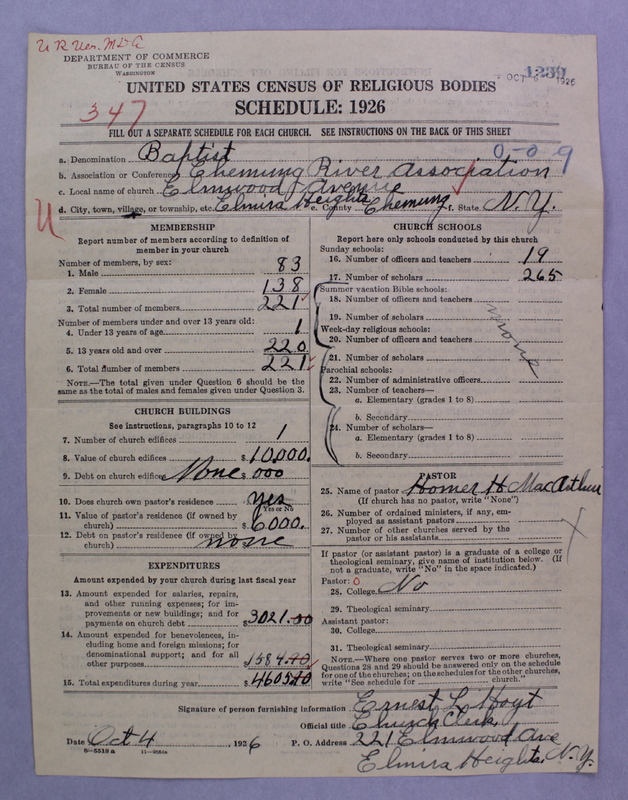 DEPARTMENT OF COMMERCE
BUREAU OF THE CENSUS
WASHINGTON
1239
OCT 1926
UNITED STATES CENSUS OF RELIGIOUS BODIES
SCHEDULE: 1926
347
FILL OUT A SEPARATE SCHEDULE FOR EACH CHURCH. SEE INSTRUCTIONS ON THE BACK OF THIS SHEET
0-0 9
a. Denomination Baptist
b. Association or Conference Chemung River Association
c. Local name of church Elmwood Avenue
d. City, town, village, or township, etc. Elmira Heights e. County Chemung f. State N.Y.
MEMBERSHIP
Report number of members according to definition of
member in your church
Number of members, by sex:
1. Male 83
2. Female 138
3. Total number of members 221
Number of members under and over 13 years old:
4. Under 13 years of age 1
5. 13 years old and over 220
6. Total number of members 221
NOTE.—The total given under Question 6 should be the
same as the total of males and females given under Question 3.
CHURCH BUILDINGS
See instructions, paragraphs 10 to 12
7. Number of church edifices 1
8. Value of church edifices $10,000.
9. Debt on church edifices None $000
10. Does church own pastor's residence yes
Yes or No
11. Value of pastor's residence (if owned by
church) $6000.
12. Debt on pastor's residence (if owned by
church) none
EXPENDITURES
Amount expended by your church during last fiscal year
13. Amount expended for salaries, repairs,
and other running expenses; for im-
provements or new buildings; and for
payments on church debt $3021.00
14. Amount expended for benevolences, in-
cluding home and foreign missions; for
denominational support; and for all
other purposes 1584.
15. Total expenditures during year $4605
CHURCH SCHOOLS
Report here only schools conducted by this church
Sunday schools:
16. Number of officers and teachers 19
17. Number of scholars 265
Summer vacation Bible schools:
18. Number of officers and teachers
19. Number of scholars
Week-day religious schools:
20. Number of officers and teachers
none
21. Number of scholars
Parochial schools:
22. Number of administrative officers
23. Number of teachers—
a. Elementary (grades 1 to 8)
b. Secondary
24. Number of scholars—
a. Elementary (grades 1 to 8)
b. Secondary
PASTOR
25. Name of pastor Homer H MacArthur
(If church has no pastor, write "None")
26. Number of ordained ministers, if any, em-
ployed as assistant pastors
27. Number of other churches served by the
pastor or his assistants
If pastor (or assistant pastor) is a graduate of a college or
theological seminary, give name of institution below. (If
not a graduate, write "No" in the space indicated.)
Pastor: 0
28. College No
29. Theological seminary
Assistant pastor:
30. College
31. Theological seminary
NOTE.—Where one pastor serves two or more churches,
Questions 28 and 29 should be answered only on the schedule
for one of the churches; on the schedules for the other churches,
write "See schedule for church."
Signature of person furnishing information Ernest L Hoyt
Official title Church Clerk
Date Oct 4, 1926 P. O. Address 221 Elmwood Ave
Elmira Heights, N.Y.